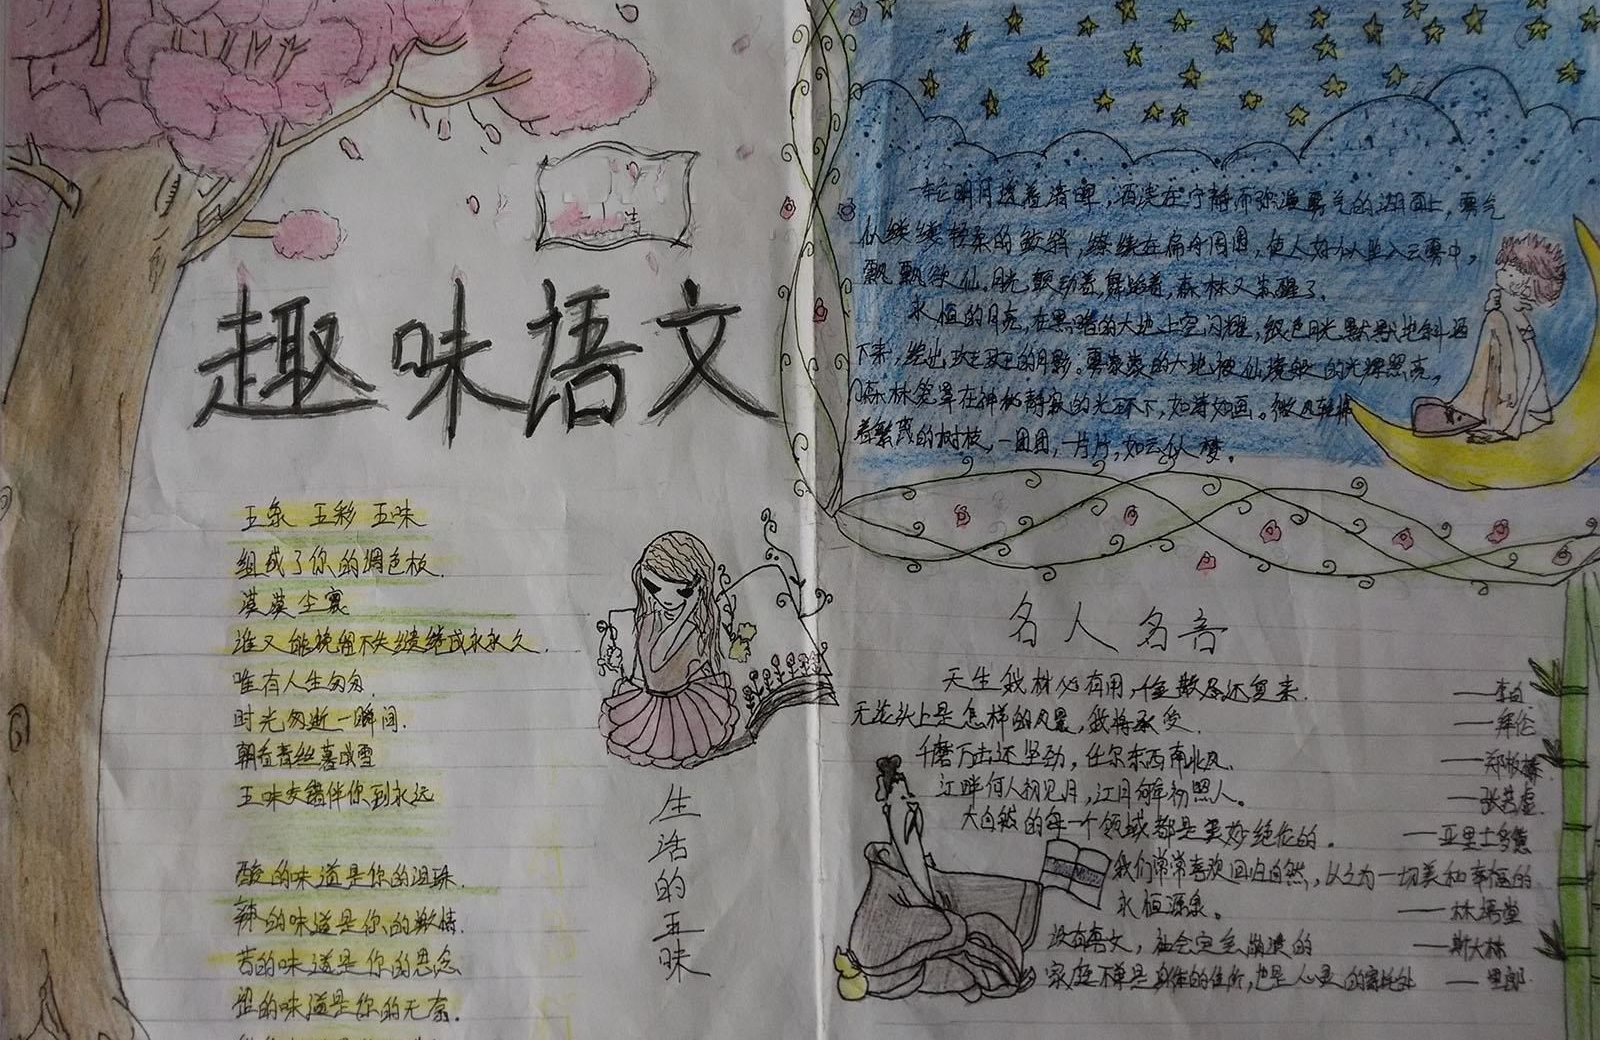 趣味语文
五条 五彩 五味
组成了你的调色板.
漠漠尘寰
谁又能挽留不失继续成永永久.
唯有人生匆匆.
时光匆逝一瞬间.
朝看青丝暮成雪
五味交错伴你到永远
酸的味道是你的泪珠.
辣的味道是你的激情.
苦的味道是你的思念
涩的味道是你的无奈.
生活的五味
一轮明月披着清晖,洒浇在宁静而弥漫雾气的湖面上,雾气
似缕缕轻柔的鲛绡,缭绕在扁舟周围,使人好似坐入云雾中,
飘飘欲仙。月光,颤动着,舞蹈着,森林又苏醒了。
永恒的月亮,在黑暗的大地上空闪耀,银色月光默默地斜洒
下来,绘出斑斑的月影。雾蒙蒙的大地被仙境般的光辉照亮,
森林笼罩在神秘静寂的光环下,如诗如画。微风轻拂
着繁茂的树枝,一团团,一片片,如云似梦。
名人名言
天生我材必有用,千金散尽还复来. ——李白
无论头上是怎样的风景,我将承受. ——拜伦
千磨万击还坚劲,任尔东西南北风. ——郑板桥
江畔何人初见月,江月何年初照人。 ——张若虚
大自然的每一个领域都是美妙绝伦的. ——亚里士多德
我们常常喜欢回归自然,以之为一切美和幸福的
永恒源泉。 ——林语堂
没有 文,社会完全崩溃的 ——斯大林
家庭不单是身体的住所,也是心灵的寄托处 ——里郎